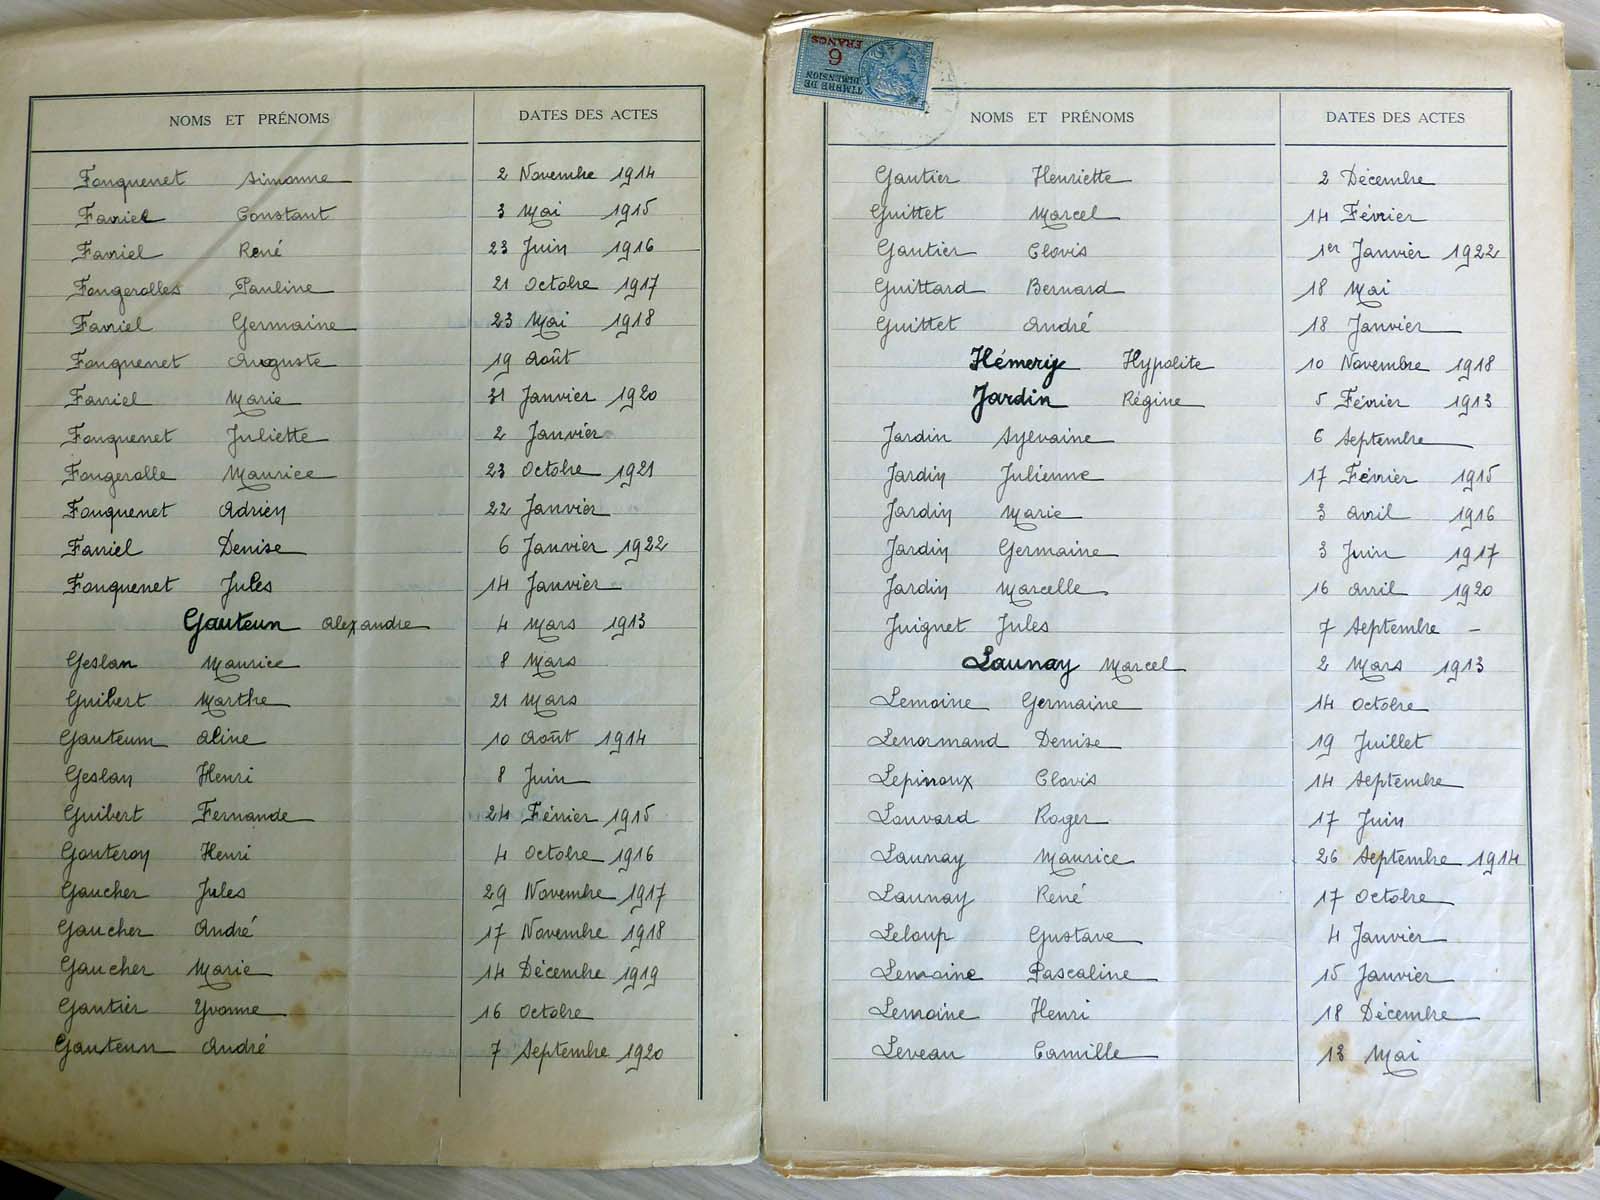 NOMS ET PRÉNOMS DATES DES ACTES
Fouquenet Simonne 2 Novembre 1914
Favriel Constant 3 Mai 1915
Favriel René 23 Juin 1916
Fougerolles Pauline 21 Octobre 1917
Favriel Germaine 23 Mai 1918
Fouquenet Auguste 19 Août
Favriel Marie 31 Janvier 1920
Fouquenet Juliette 2 Janvier
Fougerolle Maurice 23 Octobre 1921
Fouquenet Adrien 22 Janvier
Favriel Denise 6 Janvier 1922
Fouquenet Jules 14 Janvier
Gauteun Alexandre 4 Mars 1913
Geslan Maurice 8 Mars
Guibert Marthe 21 Mars
Gauteum Aline 10 Août 1914
Geslan Henri 8 Juin
Guibert Fernande 24 Février 1915
Gauteron Henri 4 Octobre 1916
Gaucher Jules 29 Novembre 1917
Gaucher André 17 Novembre 1918
Gaucher Marie 14 Décembre 1919
Gautier Yvonne 16 Octobre
Gauteun André 7 Septembre 1920
TIMBRE DE
DIMENSION
6
FRANCS
NOMS ET PRÉNOMS DATES DES ACTES
Gautier Henriette 2 Décembre
Guittet Marcel 14 Février
Gautier Clovis 1er Janvier 1922
Guittard Bernard 18 Mai
Guittet André 18 Janvier
Hémery Hypolite 10 Novembre 1918
Jardin Régine 5 Février 1913
Jardin Sylvaine 6 Septembre
Jardin Julienne 17 Février 1915
Jardin Marie 3 Avril 1916
Jardin Germaine 3 Juin 1917
Jardin Marcelle 16 Avril 1920
Juignet Jules 7 Septembre –
Launay Marcel 2 Mars 1913
Lemoine Germaine 14 Octobre
Lenormand Denise 19 Juillet
Lepinoux Clovis 14 Septembre
Louvard Roger 17 Juin
Launay Maurice 26 Septembre 1914
Launay René 17 Octobre
Leloup Gustave 4 Janvier
Lemoine Pascaline 15 Janvier
Lemoine Henri 18 Décembre
Leveau Camille 13 Mai